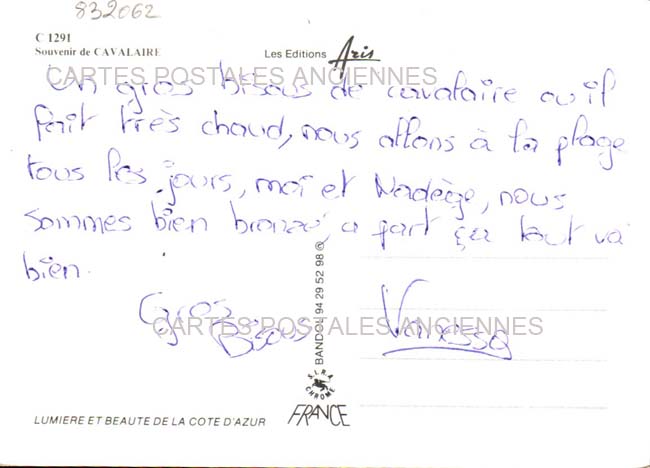 832062
C 1291
Souvenir de CAVALAIRE
Les Editions Aris
CARTES POSTALES ANCIENNES
Un gros bisous de cavalaire ou il
fait très chaud, nous allons à la plage
tous les jours, moi et Nadège, nous
sommes bien bronzé, a part ça tout va
bien.
Gros
Bisous
Vanessa
CARTES POSTALES ANCIENNES
BANDOL 94 29 52 98 ©
S.I.R.A.
CHROME
FRANCE
LUMIERE ET BEAUTE DE LA COTE D'AZUR